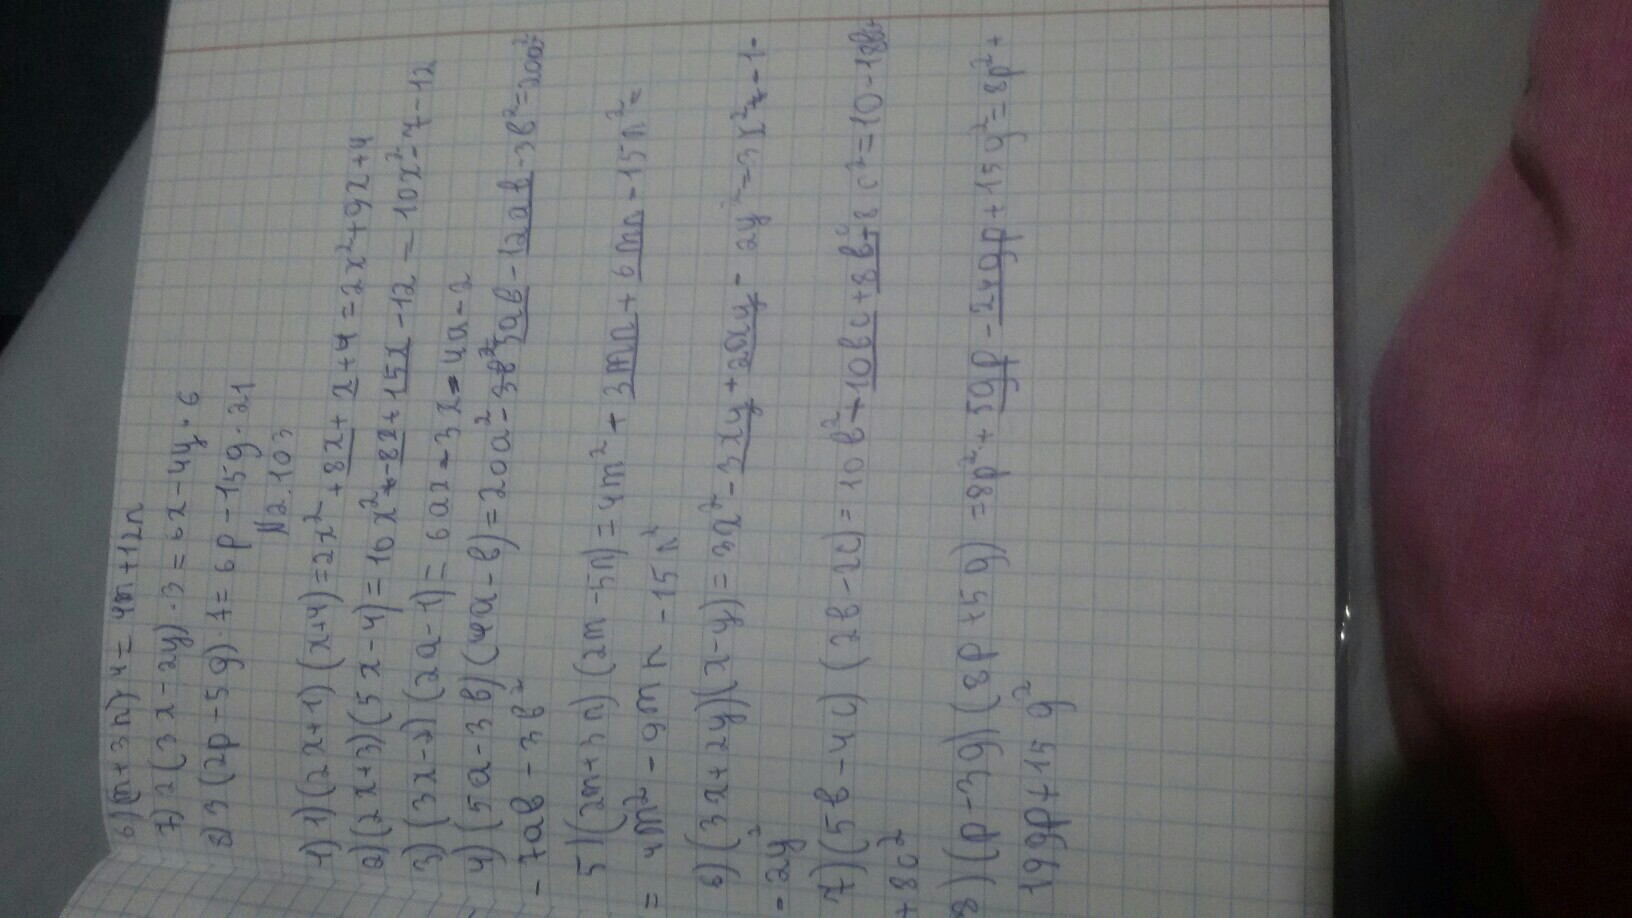 6) (m+3n)·4= 4m+12n
7) 2(3x-2y)·3=6x-4y·6
8) 3(2p-5g)·7=6p-15g·21
N2.103
1) 1) (2x+1)(x+4)=2x²+8x+x+4=2x²+9x+4
2) (2x+3)(5x-4)=10x²-8x+15x-12=10x²-7-12
3) (3x-2)(2a-1)=6ax-3x-4a-2
4) (5a-3b)(4a-b)=20a²-5ab-12ab-3b²=20a²-
-7ab-3b²
5) (2m+3n)(2m-5n)=4m²+3mn+6mn-15n²=
=4m²-9mn-15n²
6) (3x+2y)(x-y)=3x²-3xy+2xy-2y²=3x²-1-
-2y²
7) (5b-4c)(2b-2c)=10b²+10bc+8bc+8c²=10-18bc
+8c²
8) (p-3g)(8p+5g)=8p²+5gp-24gp+15g²=8p²+
19gp+15g²